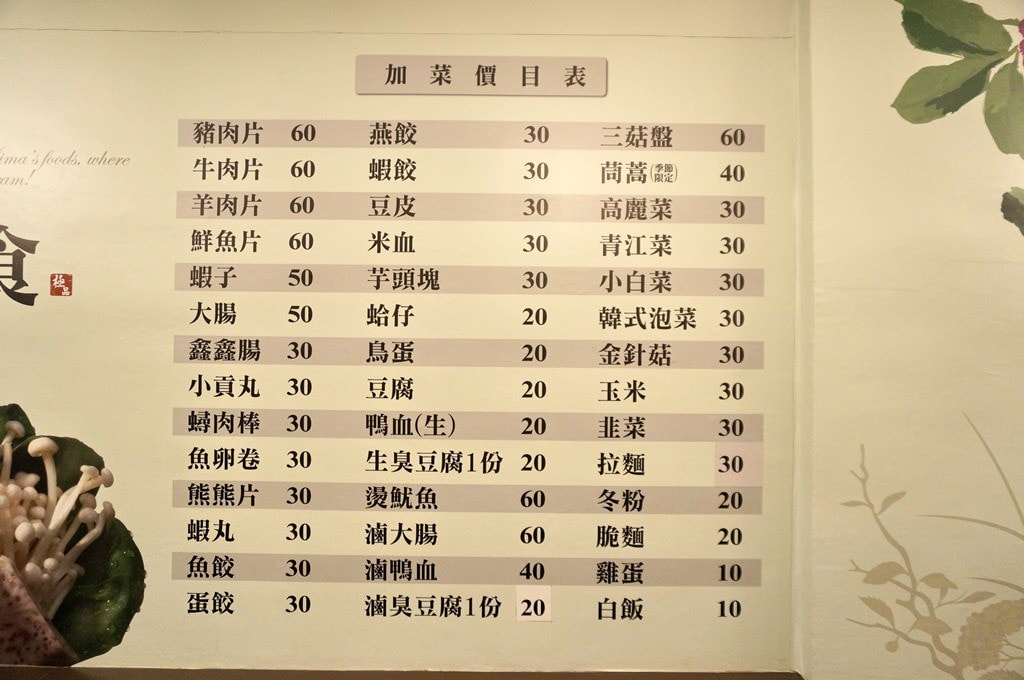 加菜價目表
ima's foods, where
am!
食
極品
豬肉片 60 燕餃 30 三菇盤 60
牛肉片 60 蝦餃 30 茼蒿(季節限定) 40
羊肉片 60 豆皮 30 高麗菜 30
鮮魚片 60 米血 30 青江菜 30
蝦子 50 芋頭塊 30 小白菜 30
大腸 50 蛤仔 20 韓式泡菜 30
鑫鑫腸 30 鳥蛋 20 金針菇 30
小貢丸 30 豆腐 20 玉米 30
蟳肉棒 30 鴨血(生) 20 韭菜 30
魚卵卷 30 生臭豆腐1份 20 拉麵 30
熊熊片 30 燙魷魚 60 冬粉 20
蝦丸 30 滷大腸 60 脆麵 20
魚餃 30 滷鴨血 40 雞蛋 10
蛋餃 30 滷臭豆腐1份 20 白飯 10